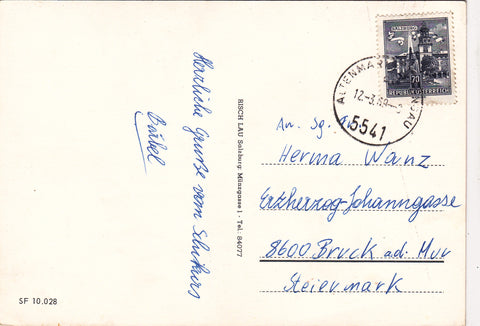 Herzliche Grüße vom Schikurs
Bärbel
RISCH LAU Salzburg Münzgasse 1 - Tel. 84077
SALZBURG
70
REPUBLIK ÖSTERREICH
ALTENMAR
GAU
12-3.69-
5541
An. Sg.
Herma Wanz
Erzherzog-Johanngasse
8600 Bruck a.d. Mur
Steiermark
SF 10.028